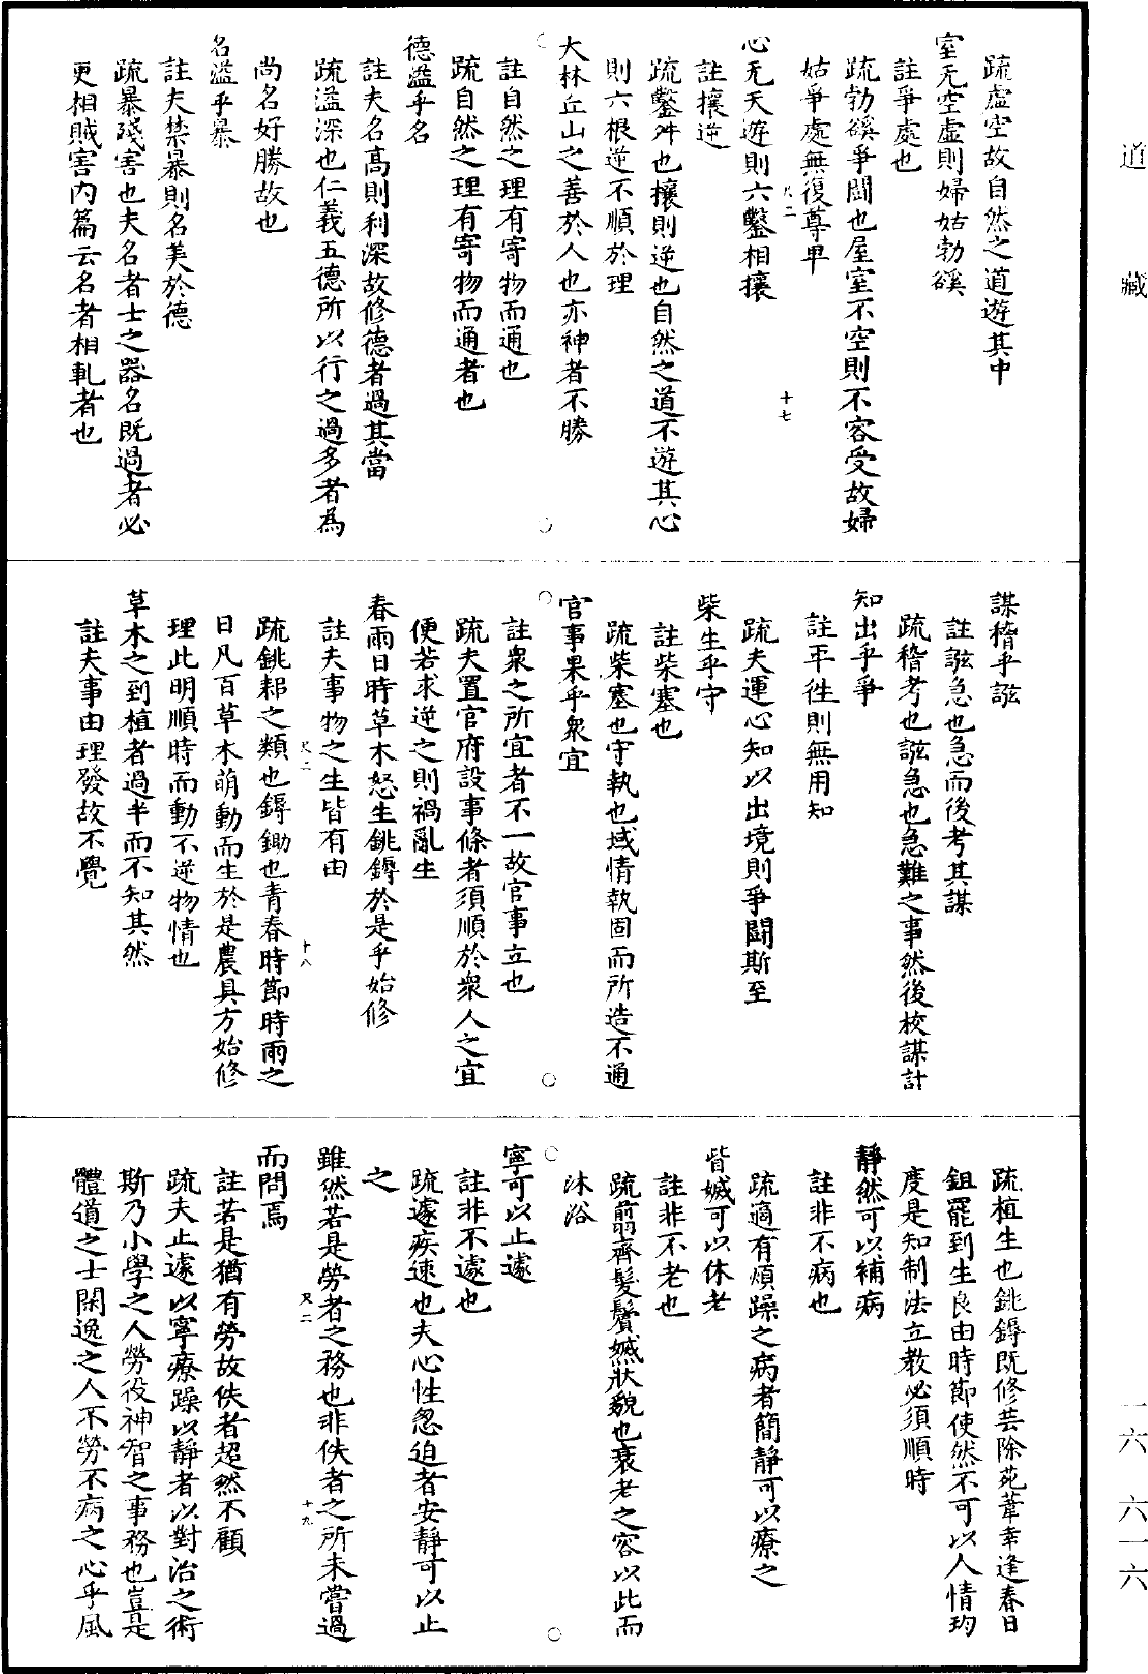 道藏
疏虛空故自然之道遊其中
室无空虛則婦姑勃豀
註爭處也
疏勃豀爭鬭也屋室不空則不容受故婦
姑爭處無復尊卑
尺二 十七
心无天遊則六鑿相攘
註攘逆
疏鑿舛也攘則逆也自然之道不遊其心
則六根逆不順於理
大林丘山之善於人也亦神者不勝
註自然之理有寄物而通也
疏自然之理有寄物而通者也
德溢乎名
註夫名高則利深故修德者過其當
疏溢深也仁義五德所以行之過多者為
尚名好勝故也
名溢乎暴
註夫禁暴則名美於德
疏暴殘害也夫名者士之器名既過者必
更相賊害内篇云名者相軋者也
謀稽乎誸
註誸急也急而後考其謀
疏稽考也誸急也急難之事然後校謀計
知出乎爭
註平往則無用知
疏夫運心知以出境則爭鬭斯至
柴生乎守
註柴塞也
疏柴塞也守執也域情執固而所造不通
官事果乎衆宜
註衆之所宜者不一故官事立也
疏夫置官府設事條者須順於衆人之宜
便若求逆之則禍亂生
春雨日時草木怒生銚鎒於是乎始修
註夫事物之生皆有由
尺二 十八
疏銚耜之類也鎒鋤也青春時節時雨之
日凡百草木萌動而生於是農具方始修
理此明順時而動不逆物情也
草木之到植者過半而不知其然
註夫事由理發故不覺
疏植生也銚鎒既修芸除苑葦幸逢春日
鉏罷到生良由時節使然不可以人情均
度是知制法立教必須順時
靜然可以補病
註非不病也
疏適有煩躁之病者簡靜可以療之
眥媙可以休老
註非不老也
疏翦齊髮鬢媙狀貌也衰老之容以此而
沐浴
寧可以止遽
註非不遽也
疏遽疾速也夫心性忽迫者安靜可以止
之
雖然若是勞者之務也非佚者之所未嘗過
尺二 十九
而問焉
註若是猶有勞故佚者超然不顧
疏夫止遽以寧療躁以靜者以對治之術
斯乃小學之人勞役神智之事務也豈是
體道之士閑逸之人不勞不病之心乎風
一六 六一六